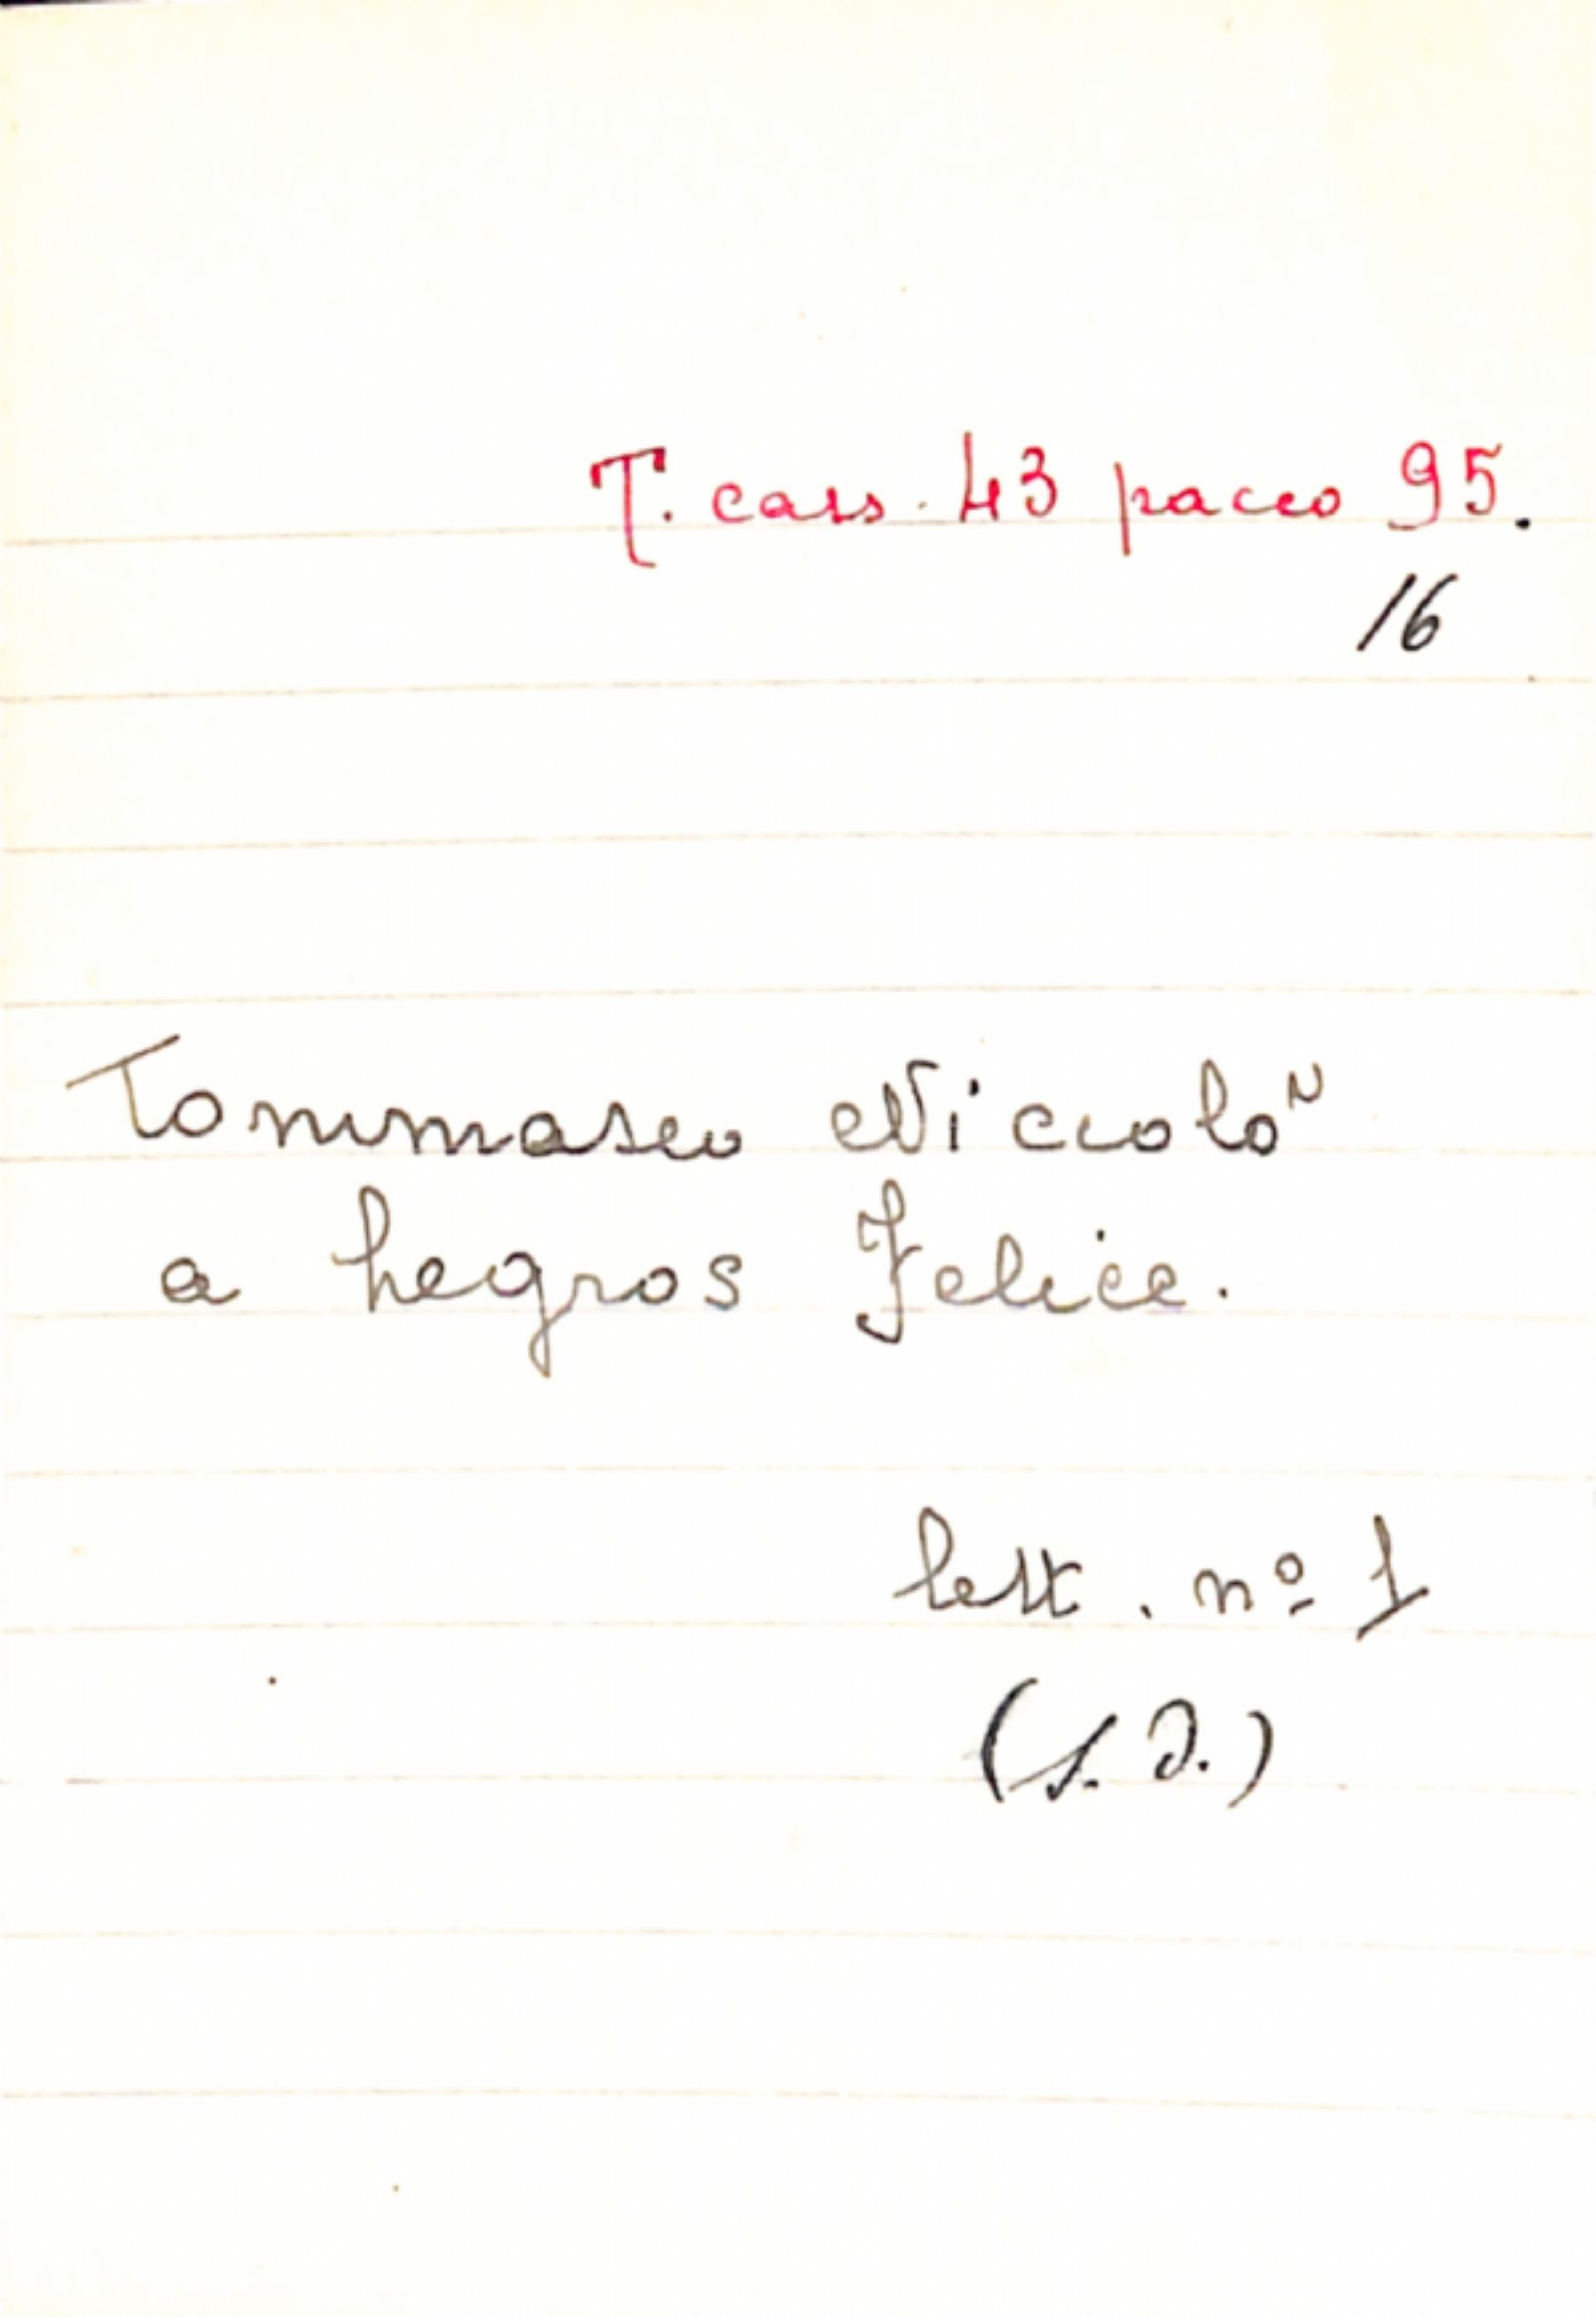 T. cass. 43 pacco 95.
16
Tommaseo Niccolò
a Legros Felice.
lett. nº 1
(s. d.)